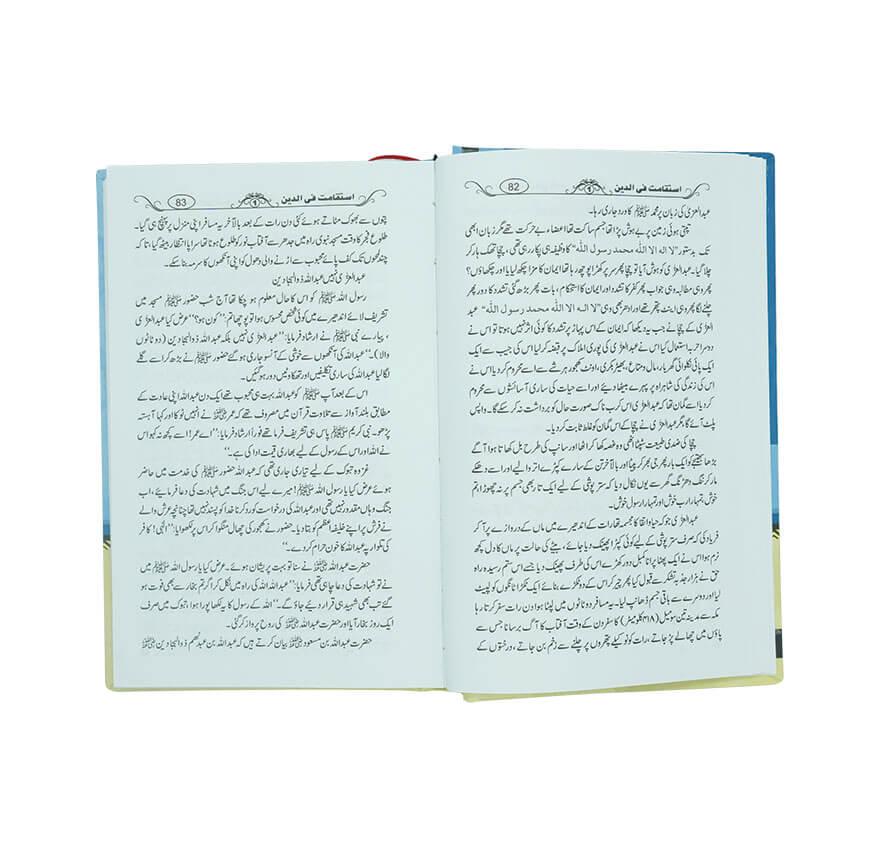 82
1
استقامت فی الدین
عبدالعزیٰ کی زبان پر محمد ﷺ کا ورد جاری رہا۔
تپتی ہوئی زمین پر بے ہوش پڑا تھا جسم ساکت تھا اعضاء بے حرکت تھے مگر زبان ابھی
تک بدستور ”لا الہ الا اللہ محمد رسول اللہ“ کا وظیفہ ہی پکار رہی تھی، چچا تھک ہار کر
چلا گیا۔ عبدالعزیٰ کو ہوش آیا تو چچا پھر سر پر کھڑا پوچھ رہا تھا ایمان کا مزا چکھ لیا یا اور چکھاؤں؟
پھر وہی مطالبہ وہی جواب پھر کفر کا تشدد اور ایمان کا استحکام، بات پھر بڑھ گئی تشدد کا دور پھر
چلنے لگا پھر وہی اینٹ پتھر تھے اور ادھر بھی وہی ”لا الہ الا اللہ محمد رسول اللہ“ عبد
العزیٰ کے چچا نے جب یہ دیکھا کہ ایمان کے اس پہاڑ پر تشدد کا کوئی اثر نہیں ہوتا تو اس نے
دوسرا حربہ استعمال کیا اس نے عبدالعزیٰ کی پوری املاک پر قبضہ کر لیا اس کی جیب سے ایک
ایک پائی نکلوائی گھر بار، مال و متاع، بھیڑ بکری، اونٹ کھجور ہر شے سے اسے محروم کر دیا اس نے
اس کی زندگی کی شاہراہ پر پہرے بیٹھا دیئے اور اسے حیات کی ساری آسائشوں سے محروم
کر دیا اسے گمان تھا کہ عبدالعزیٰ اس کرب ناک صورت حال کو برداشت نہ کر سکے گا۔ واپس
پلٹ آئے گا مگر عبدالعزیٰ نے چچا کے اس گمان کو غلط ثابت کر دیا۔
چچا کی ضدی طبیعت سٹپٹا اٹھی وہ غصہ کھا کر اٹھا اور سانپ کی طرح بل کھاتا ہوا آگے
بڑھا بھتیجے کو ایک بار پھر جی بھر کر پیٹا اور بالآخر تن کے سارے کپڑے اتروا لیے اور اسے دھکے
مار کر ننگ دھڑنگ گھر سے یوں نکال دیا کہ ستر پوشی کے لیے ایک تار بھی جسم پر نہ چھوڑا ہم
خوش، تمہارا رب خوش اور تمہارا رسول خوش۔
عبدالعزیٰ جو کہ حیا و اتقا کا مجسمہ تھا رات کے اندھیرے میں ماں کے دروازے پر آ کر
فریاد کی کہ صرف ستر پوشی کے لیے کوئی کپڑا پھینک دیا جائے، بیٹے کی حالت پر ماں کا دل کچھ
نرم ہوا اس نے ایک پھٹا پرانا کمبل دور کھڑے اس کی طرف پھینک دیا جسے اس ستم رسیدہ راہ
حق نے ہزار جذبہ تشکر سے قبول کیا پھر چیر کر اس کے دو ٹکڑے بنائے ایک ٹکڑا ٹانگوں کو لپیٹ
لیا اور دوسرے سے باقی جسم ڈھانپ لیا۔ یہ مسافر دو ٹاٹوں میں لپٹا ہوا دن رات سفر کرتا رہا
مکہ سے مدینہ تین سو میل (۴۱۸ کلومیٹر) کا سفر دن کے وقت آفتاب کا آگ برسانا جس سے
پاؤں میں چھالے پڑ جاتے، رات کو نوکیلے پتھروں پر چلنے سے زخم بن جاتے، درختوں کے
83
1
استقامت فی الدین
پتوں سے بھوک مٹاتے ہوئے کئی دن رات کے بعد بالآخر یہ مسافر اپنی منزل پر پہنچ ہی گیا۔
طلوع فجر کا وقت مسجد نبوی راہ میں جدھر سے آفتاب نور کو طلوع ہونا تھا سراپا انتظار بیٹھ گیا، تا کہ
چند لمحوں تک کف پائے محبوب سے اڑنے والی دھول کو اپنی آنکھوں کا سرمہ بنا سکے۔
عبدالعزیٰ نہیں عبداللہ ذوالبجادین
رسول اللہ ﷺ کو اس کا حال معلوم ہو چکا تھا آج شب حضور ﷺ مسجد میں
تشریف لائے اندھیرے میں کوئی شخص محسوس ہوا تو پوچھا تم: ”کون ہو؟“ عرض کیا عبدالعزیٰ
، پیارے نبی ﷺ نے ارشاد فرمایا: ”عبدالعزیٰ نہیں بلکہ عبداللہ ذوالبجادین (دو ٹاٹوں
والا)۔“ عبداللہ کی آنکھوں سے خوشی کے آنسو جاری ہو گئے حضور ﷺ نے بڑھ کر اسے گلے
لگا لیا عبداللہ کی ساری تکلیفیں اور تھکاوٹیں دور ہو گئیں۔
اس کے بعد آپ ﷺ کو عبداللہ بہت ہی محبوب تھے ایک دن عبداللہ اپنی عادت کے
مطابق بلند آواز سے تلاوت قرآن میں مصروف تھے کہ عمر نے انہیں ٹوکا اور کہا آہستہ
پڑھو۔ نبی کریم ﷺ پاس ہی تشریف فرما تھے فوراً ارشاد فرمایا: ”اے عمر! اسے کچھ نہ کہو اس
نے اللہ اور اس کے رسول کے لیے بھاری قیمت ادا کی ہے۔“
غزوہ تبوک کے لیے تیاری جاری تھی کہ عبداللہ حضور ﷺ کی خدمت میں حاضر
ہوئے عرض کیا یا رسول اللہ ﷺ! میرے لیے اس جنگ میں شہادت کی دعا فرمایئے، اب
جنگ و ہاں مقدور نہیں تھی اور عبداللہ کی درخواست کو رد کرنا خدا کو پسند نہیں تھا چنانچہ عرش والے
نے فرش پر اپنے خلیفہ اعظم کو بتا دیا۔ حضور نے کھجور کی چھال منگوا کر اس پر لکھوایا: ”الٰہی! کافر
کی تلوار پہ عبداللہ کا خون حرام کر دے۔“
حضرت عبداللہ نے سنا تو بہت پریشان ہوئے۔ عرض کیا یا رسول اللہ ﷺ میں
نے تو شہادت کی دعا چاہی تھی فرمایا: ”عبداللہ اللہ کی راہ میں نکل کر اگر تم بخار سے بھی فوت ہو
گئے تب بھی شہید ہی قرار دیئے جاؤ گے۔“ اللہ کے رسول کا یہ کہا پورا ہوا، تبوک میں صرف
ایک روز بخار آیا اور حضرت عبداللہ کی روح پرواز کر گئی۔
حضرت عبداللہ بن مسعود بیان کرتے ہیں کہ عبداللہ بن نہم ذوالبجادین